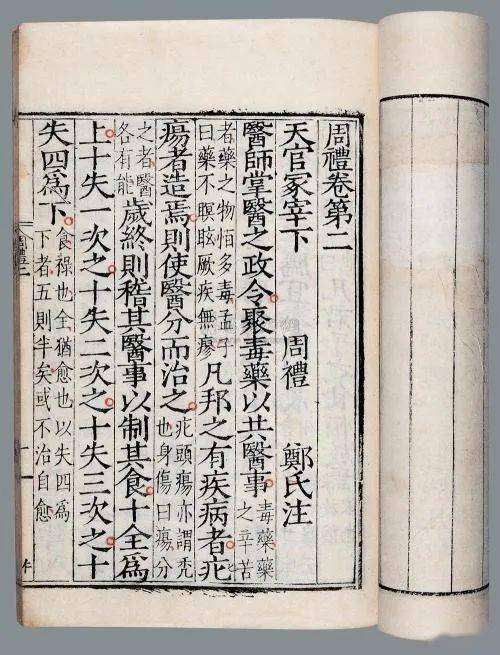 周禮卷第二
天官冢宰下 周禮 鄭氏注
醫師掌醫之政令聚毒藥以共醫事毒藥藥之辛苦
者藥之物恒多毒孟子曰藥不瞑眩厥疾無瘳凡邦之有疾病者疕
瘍者造焉則使醫分而治之疕頭瘍亦謂禿也身傷曰瘍分
之者醫各有能歲終則稽其醫事以制其食十全爲
上十失一次之十失二次之十失三次之十
失四爲下食祿也全猶愈也以失四爲下者五則半矣或不治自愈